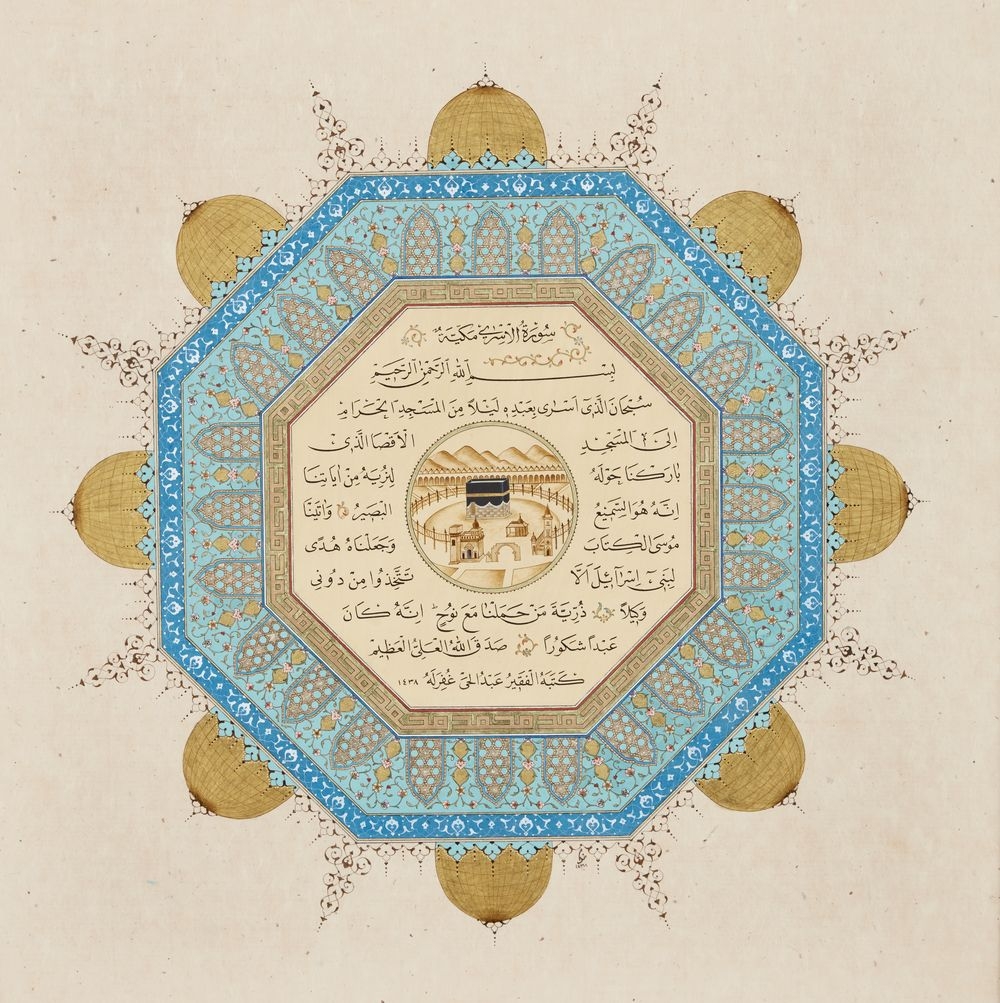 سُورَةُ الْاِسْرٰى مَكِّيَّةٌ
بِسْمِ اللّٰهِ الرَّحْمٰنِ الرَّحِيمِ
سُبْحَانَ الَّذٖى اَسْرٰى بِعَبْدِهٖ لَيْلًا مِنَ الْمَسْجِدِ الْحَرَامِ
اِلَى الْمَسْجِدِ الْاَقْصَا الَّذٖى
بَارَكْنَا حَوْلَهُ لِنُرِيَهُ مِنْ اٰيَاتِنَا
اِنَّهُ هُوَ السَّمٖيعُ الْبَصٖيرُ وَاٰتَيْنَا
مُوسَى الْكِتَابَ وَجَعَلْنَاهُ هُدًى
لِبَنٖى اِسْرَآئٖلَ اَلَّا تَتَّخِذُوا مِنْ دُونٖى
وَكٖيلًا ذُرِّيَّةَ مَنْ حَمَلْنَا مَعَ نُوحٍ اِنَّهُ كَانَ
عَبْدًا شَكُورًا صَدَقَ اللّٰهُ الْعَلِىُّ الْعَظٖيمُ
كَتَبَهُ الْفَقٖيرُ عَبْدُ الْحَىِّ غُفِرَ لَهُ ١٤٣٨